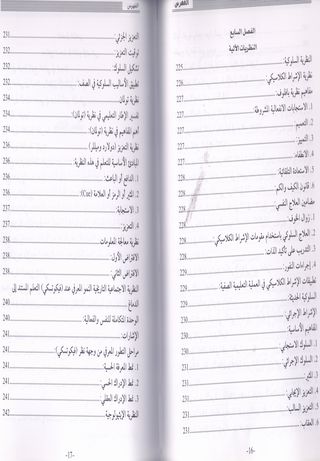 الفهرس
الفصل السابع
النظريات الآتية
النظرية السلوكية: 225
نظرية الإشراط الكلاسيكي: 226
مفاهيم نظرية بافلوف: 227
1. الاستجابات الانفعالية المشروطة: 227
2. التعميم: 227
3. التمييز: 227
4. الانطفاء: 227
5. الاستعادة التلقائية: 228
6. قانون الكيف والكم: 228
مضامين العلاج النفسي: 228
1. زوال الخوف: 228
2. العلاج السلوكي باستخدام مقومات الإشراط الكلاسيكي: 228
3. التدريب على تأكيد الذات: 228
4. إجراءات النفور: 229
تطبيقات الإشراط الكلاسيكي في العملية التعليمية الصفية: 229
السلوكية الحديثة: 229
الإشراط الإجرائي: 230
المفاهيم الأساسية: 230
1. السلوك الاستجابي: 230
2. السلوك الإجرائي: 230
3. المثير: 231
4. التعزيز الإيجابي: 231
5. التعزيز السالب: 231
6. العقاب: 231
-16-
الفهرس
التعزيز الجزئي: 231
توقيت التعزيز: 232
تشكيل السلوك: 232
تطبيق الأساليب السلوكية في الصف: 232
نظرية تولمان 234
تفسير الإطار التعليمي في نظرية (تولمان): 234
أهم المفاهيم في نظرية (تولمان): 234
نظرية التعزيز (دولارد وميللر) 236
المبادئ الأساسية للتعلم في هذه النظرية: 236
1. الدافع أو الباعث: 236
2. المثير أو الرمز أو العلامة (Cue) 236
3. الاستجابة: 237
4. التعزيز: 237
نظرية معالجة المعلومات: 238
الافتراض الأول: 238
الافتراض الثاني: 238
النظرية الاجتماعية التاريخية النمو المعرفي عند (فيكوتسكي) التعلم المستند إلى
الدماغ 240
الوحدة المتكاملة للنفس والفعالية: 240
الإشارات: 241
مراحل التطور المعرفي من وجهة نظر (فيكوتسكي): 241
1. نمط المعرفة الحسية: 241
2. نمط الإدراك الحسي: 241
3. نمط الإدراك العقلي: 241
النظرية الإيثيولوجية 242
-17-